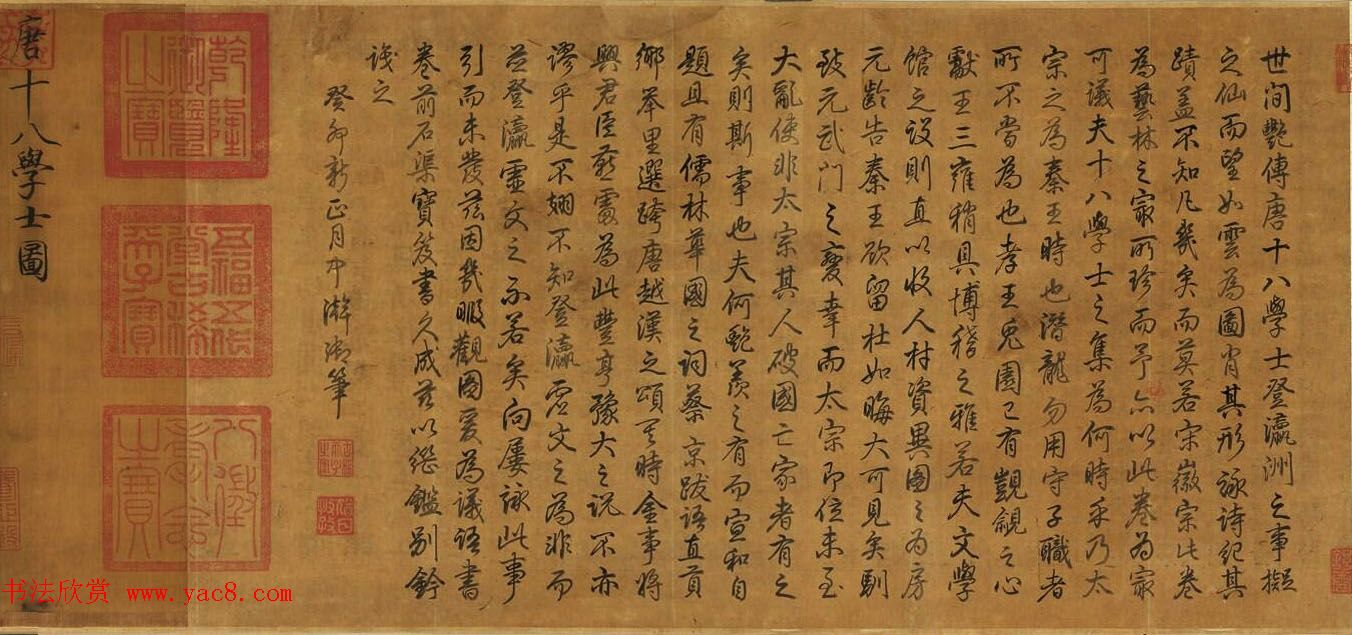 世間艷傳唐十八學士登瀛洲之事擬
之仙而望如雲為圖肖其形詠詩紀其
蹟蓋不知凡幾矣而莫若宋徽宗此卷
為藝林之最所珍而予亦以此卷為最
可議夫十八學士之集為何時乎乃太
宗之為秦王時也潛龍勿用守子職者
所不當為也孝王兎園已有覬覦之心
獻王三雍稍具博稽之雅若夫文學
館之設則直以收人材資異圖之為房
元齡告秦王欲留杜如晦大可見矣馴
致元武門之變幸而太宗即位未至
大亂使非太宗其人破國亡家者有之
矣則斯事也夫何艷羨之有而宣和自
題且有儒林華國之詞蔡京跋語直頁
鄉舉里選跨唐越漢之頌其時金事將
興君臣為此豐亨豫大之說不亦
謬乎是不翅不知登瀛虛文之為非而
並登瀛虛文之不若矣向屢詠此事
引而未發茲因幾暇觀圖爰為議語書
卷前石渠寶笈書久成茲以經鑑別鈐
識之
癸卯新正月中澣御筆
乾隆御覽之寶
五福五代堂古稀天子寶
八徵耄念之寶
唐十八學士圖
书法欣赏 www.yac8.com